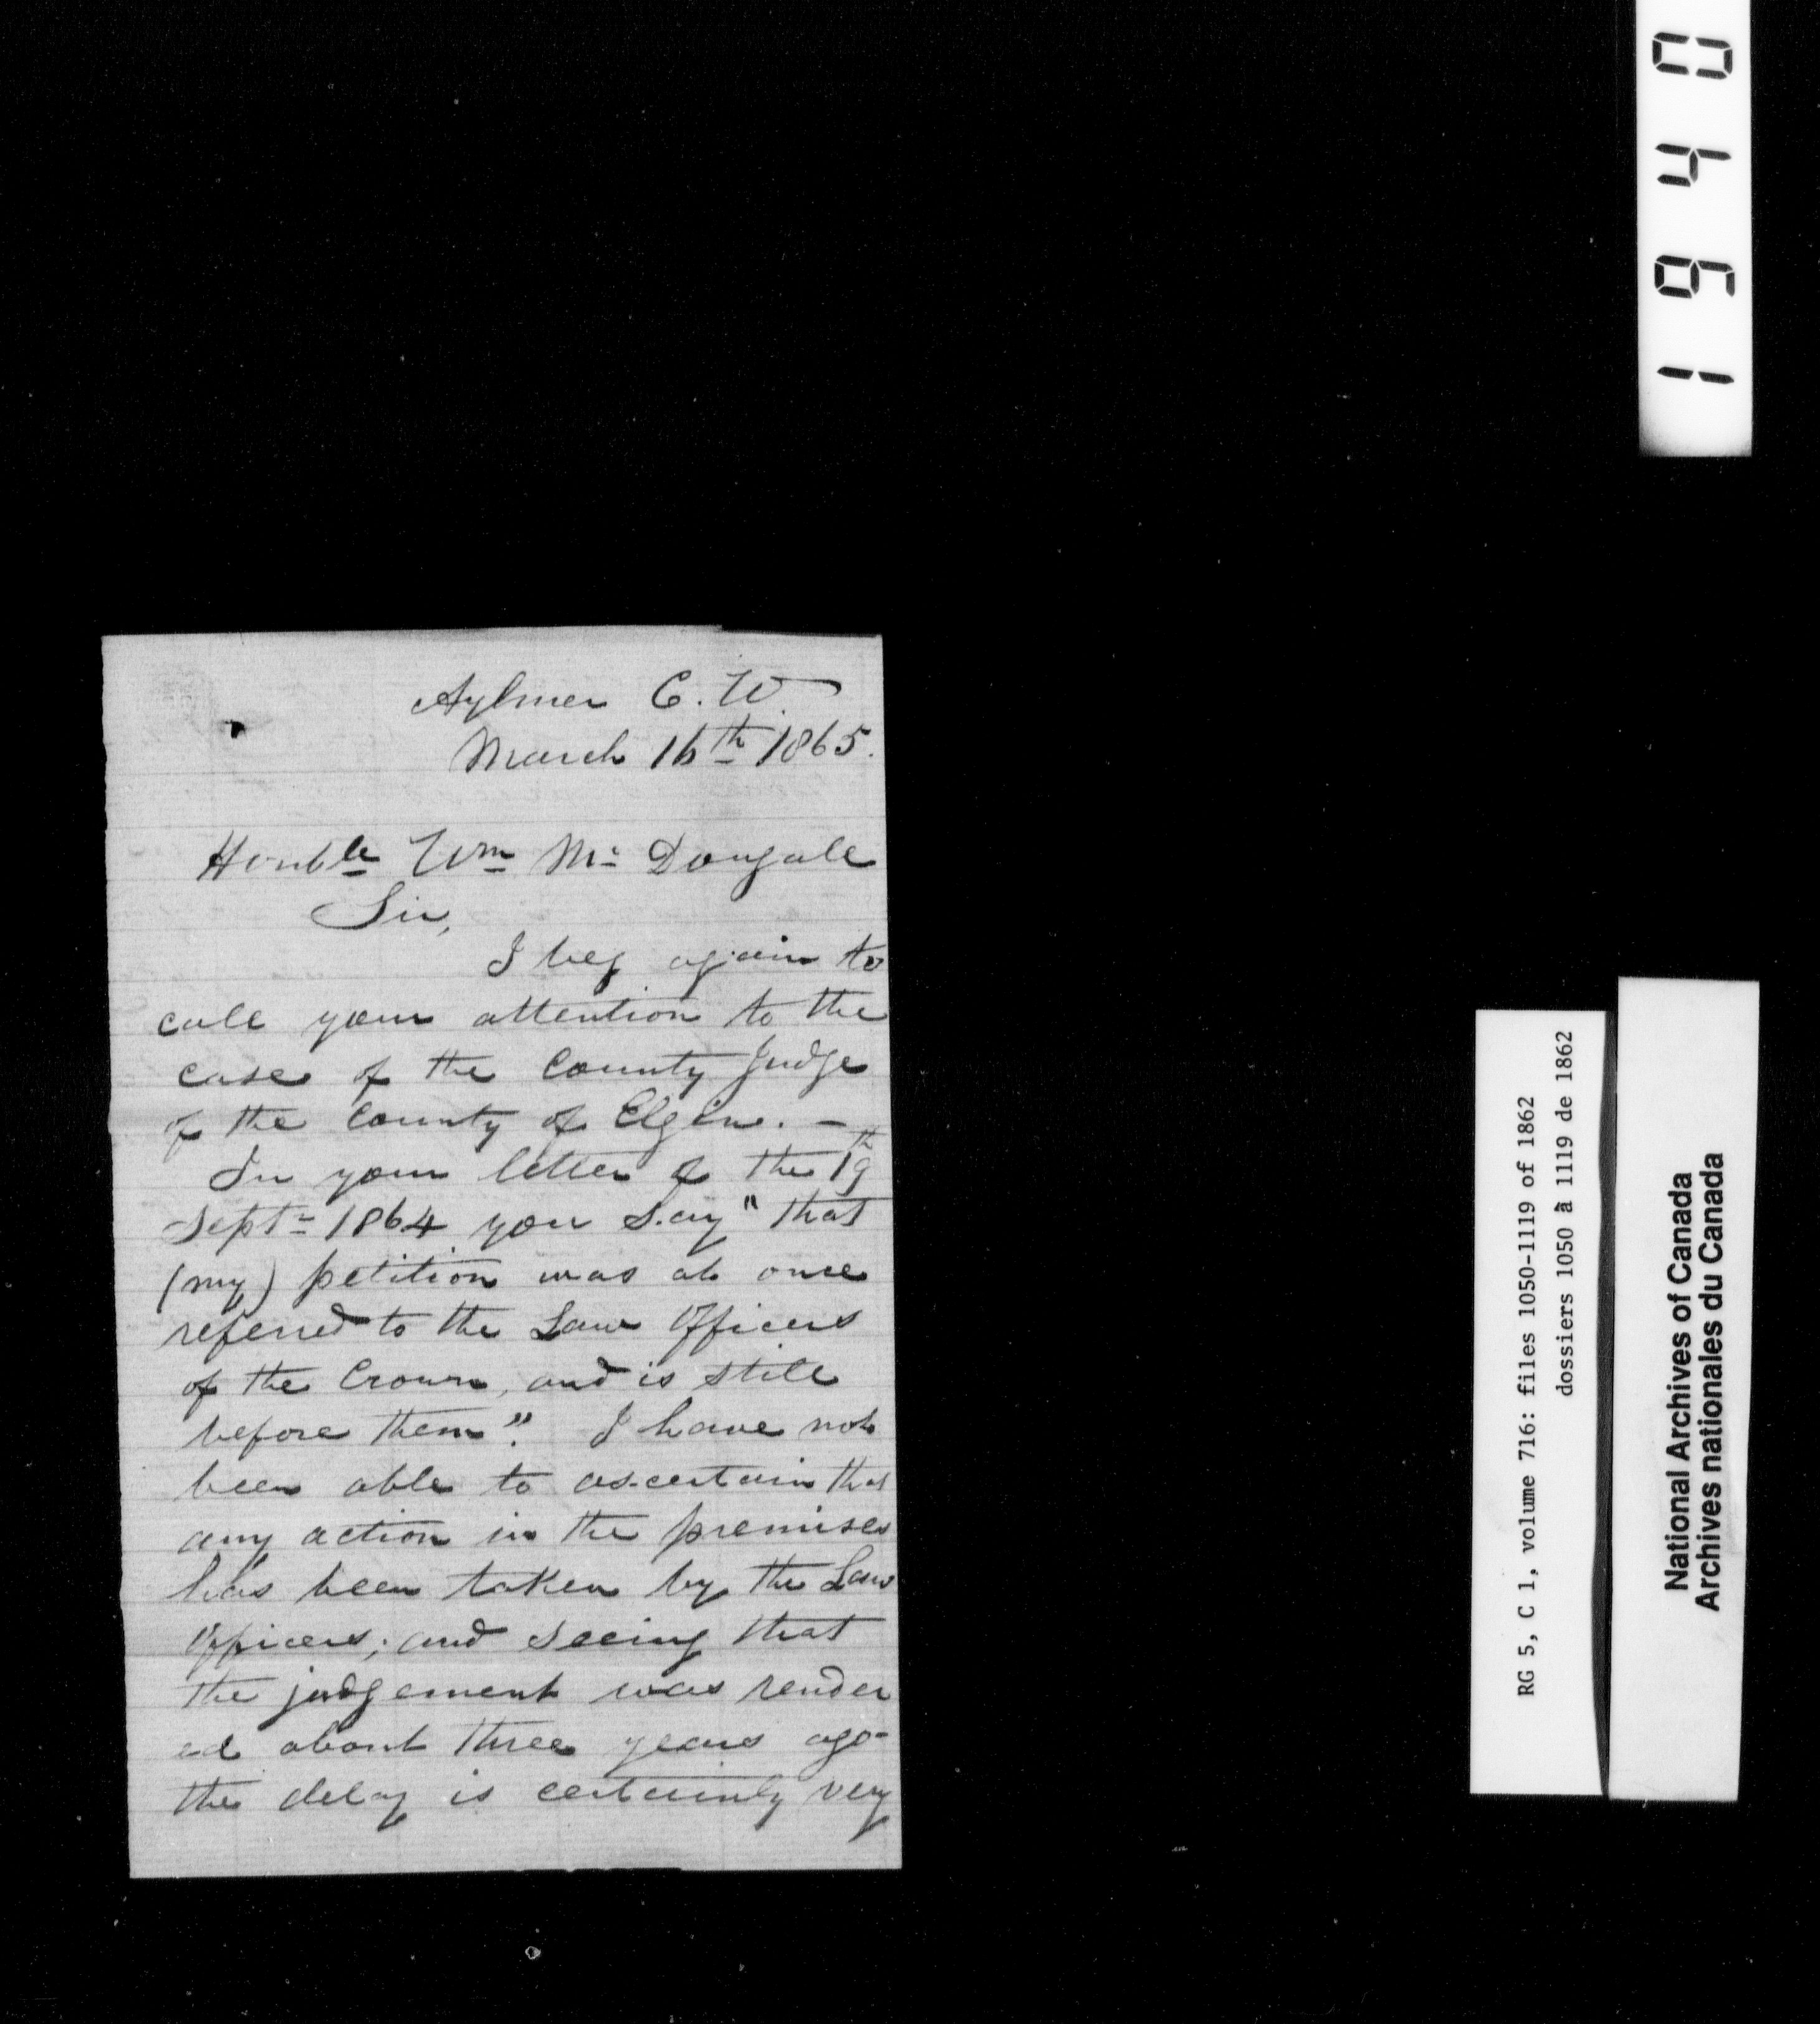 Aylmer C. W.
March 16th 1865.
Honble Wm Mc Dougall
Sir,
I beg again to
call your attention to the
case of the County Judge
of the County of Elgin. –
In your letter of the 19th
Septr 1864 you say "that
(my) petition was at once
referred to the Law Officers
of the Crown, and is still
before them". I have not
been able to ascertain that
any action in the premises
has been taken by the Law
Officers; and seeing that
the judgement was render
ed about three years ago-
the delay is certainly very
1940
RG 5, C 1, volume 716: files 1050-1119 of 1862
dossiers 1050 â 1119 de 1862
National Archives of Canada
Archives nationales du Canada